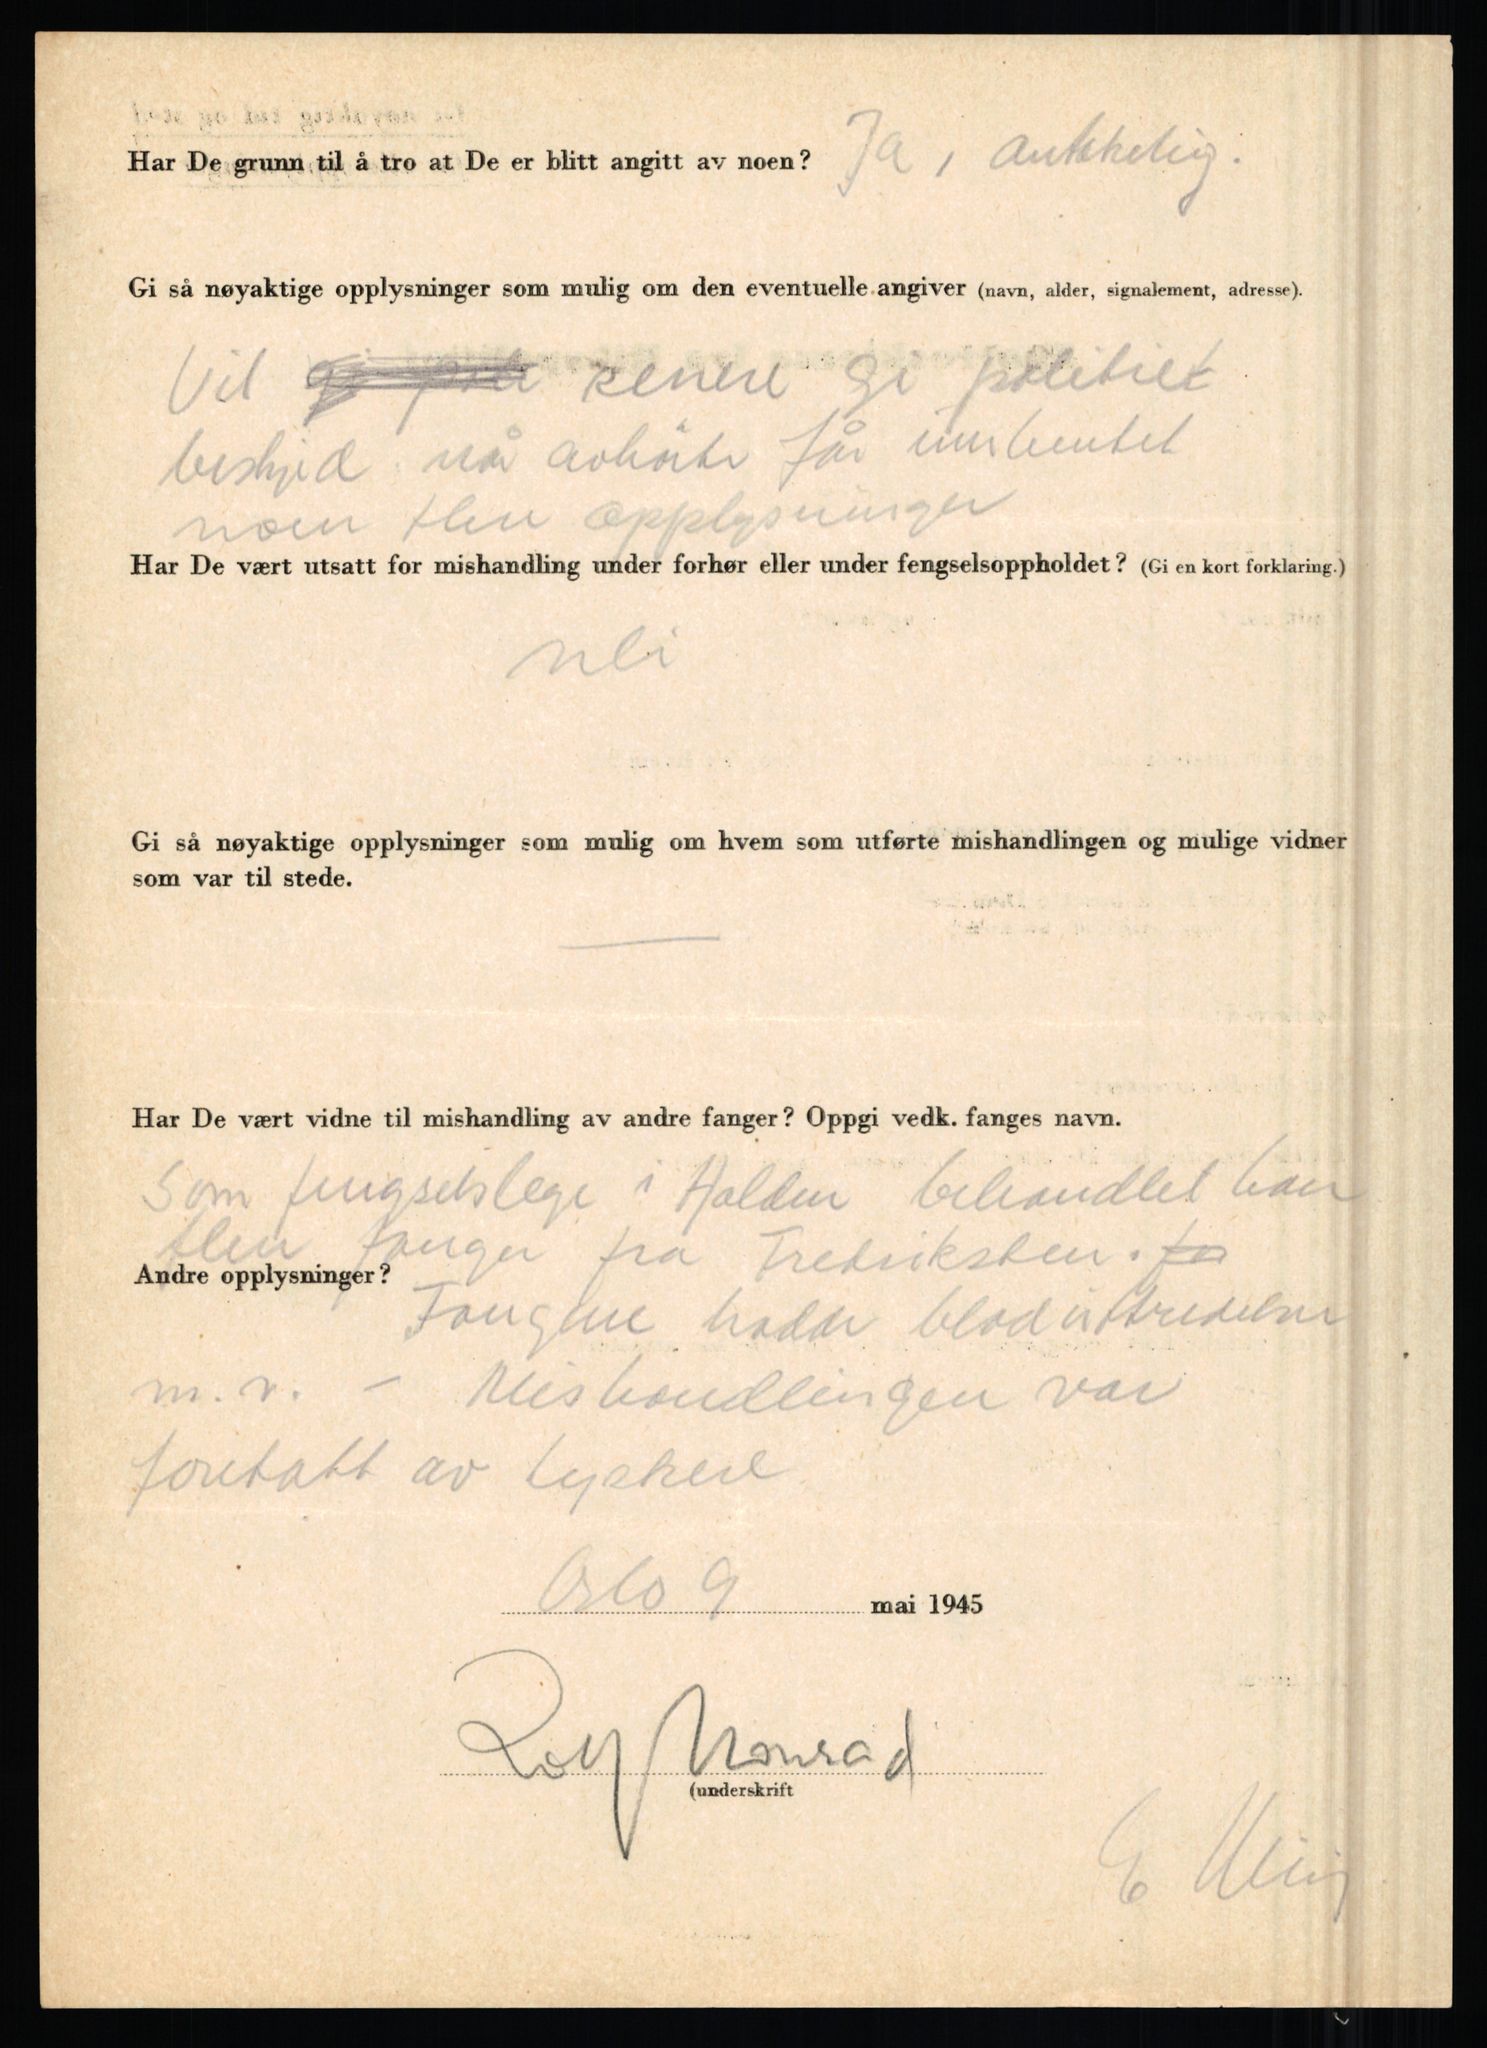 Har De grunn til å tro at De er blitt angitt av noen? Ja, antkelig.
Gi så nøyaktige opplysninger som mulig om den eventuelle angiver (navn, alder, signalement, adresse).
Vil senere gi politiet
beskjed når avhörte får innhentet
noen flere opplysninger
Har De vært utsatt for mishandling under forhør eller under fengselsoppholdet? (Gi en kort forklaring.)
Nei
Gi så nøyaktige opplysninger som mulig om hvem som utførte mishandlingen og mulige vidner
som var til stede.
Har De vært vidne til mishandling av andre fanger? Oppgi vedk. fanges navn.
Som fengselslege i Halden behandlet han
flere fanger fra Fredriksten.
Andre opplysninger?
Fangene hadde bloduttredelser
m. v. - Mishandlingen var
foretatt av tyskere
Oslo 9 mai 1945
Rolf Konrad
(underskrift
E